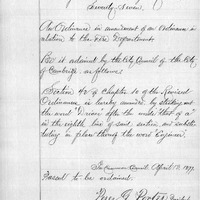 Seventy-Seven.
An Ordinance in amendment of an ordinance in
relation to the Fire Department.
Be it ordained by the City Council of the City
of Cambridge, as follows:
Section 42 of Chapter 10 of the Revised
Ordinances is hereby amended by striking out
the word "Driver" after the under that of a
in the eighth line of said section, and substitu-
ting in place thereof the word Engineer.
In Common Council April 13, 1897.
Passed to be ordained.